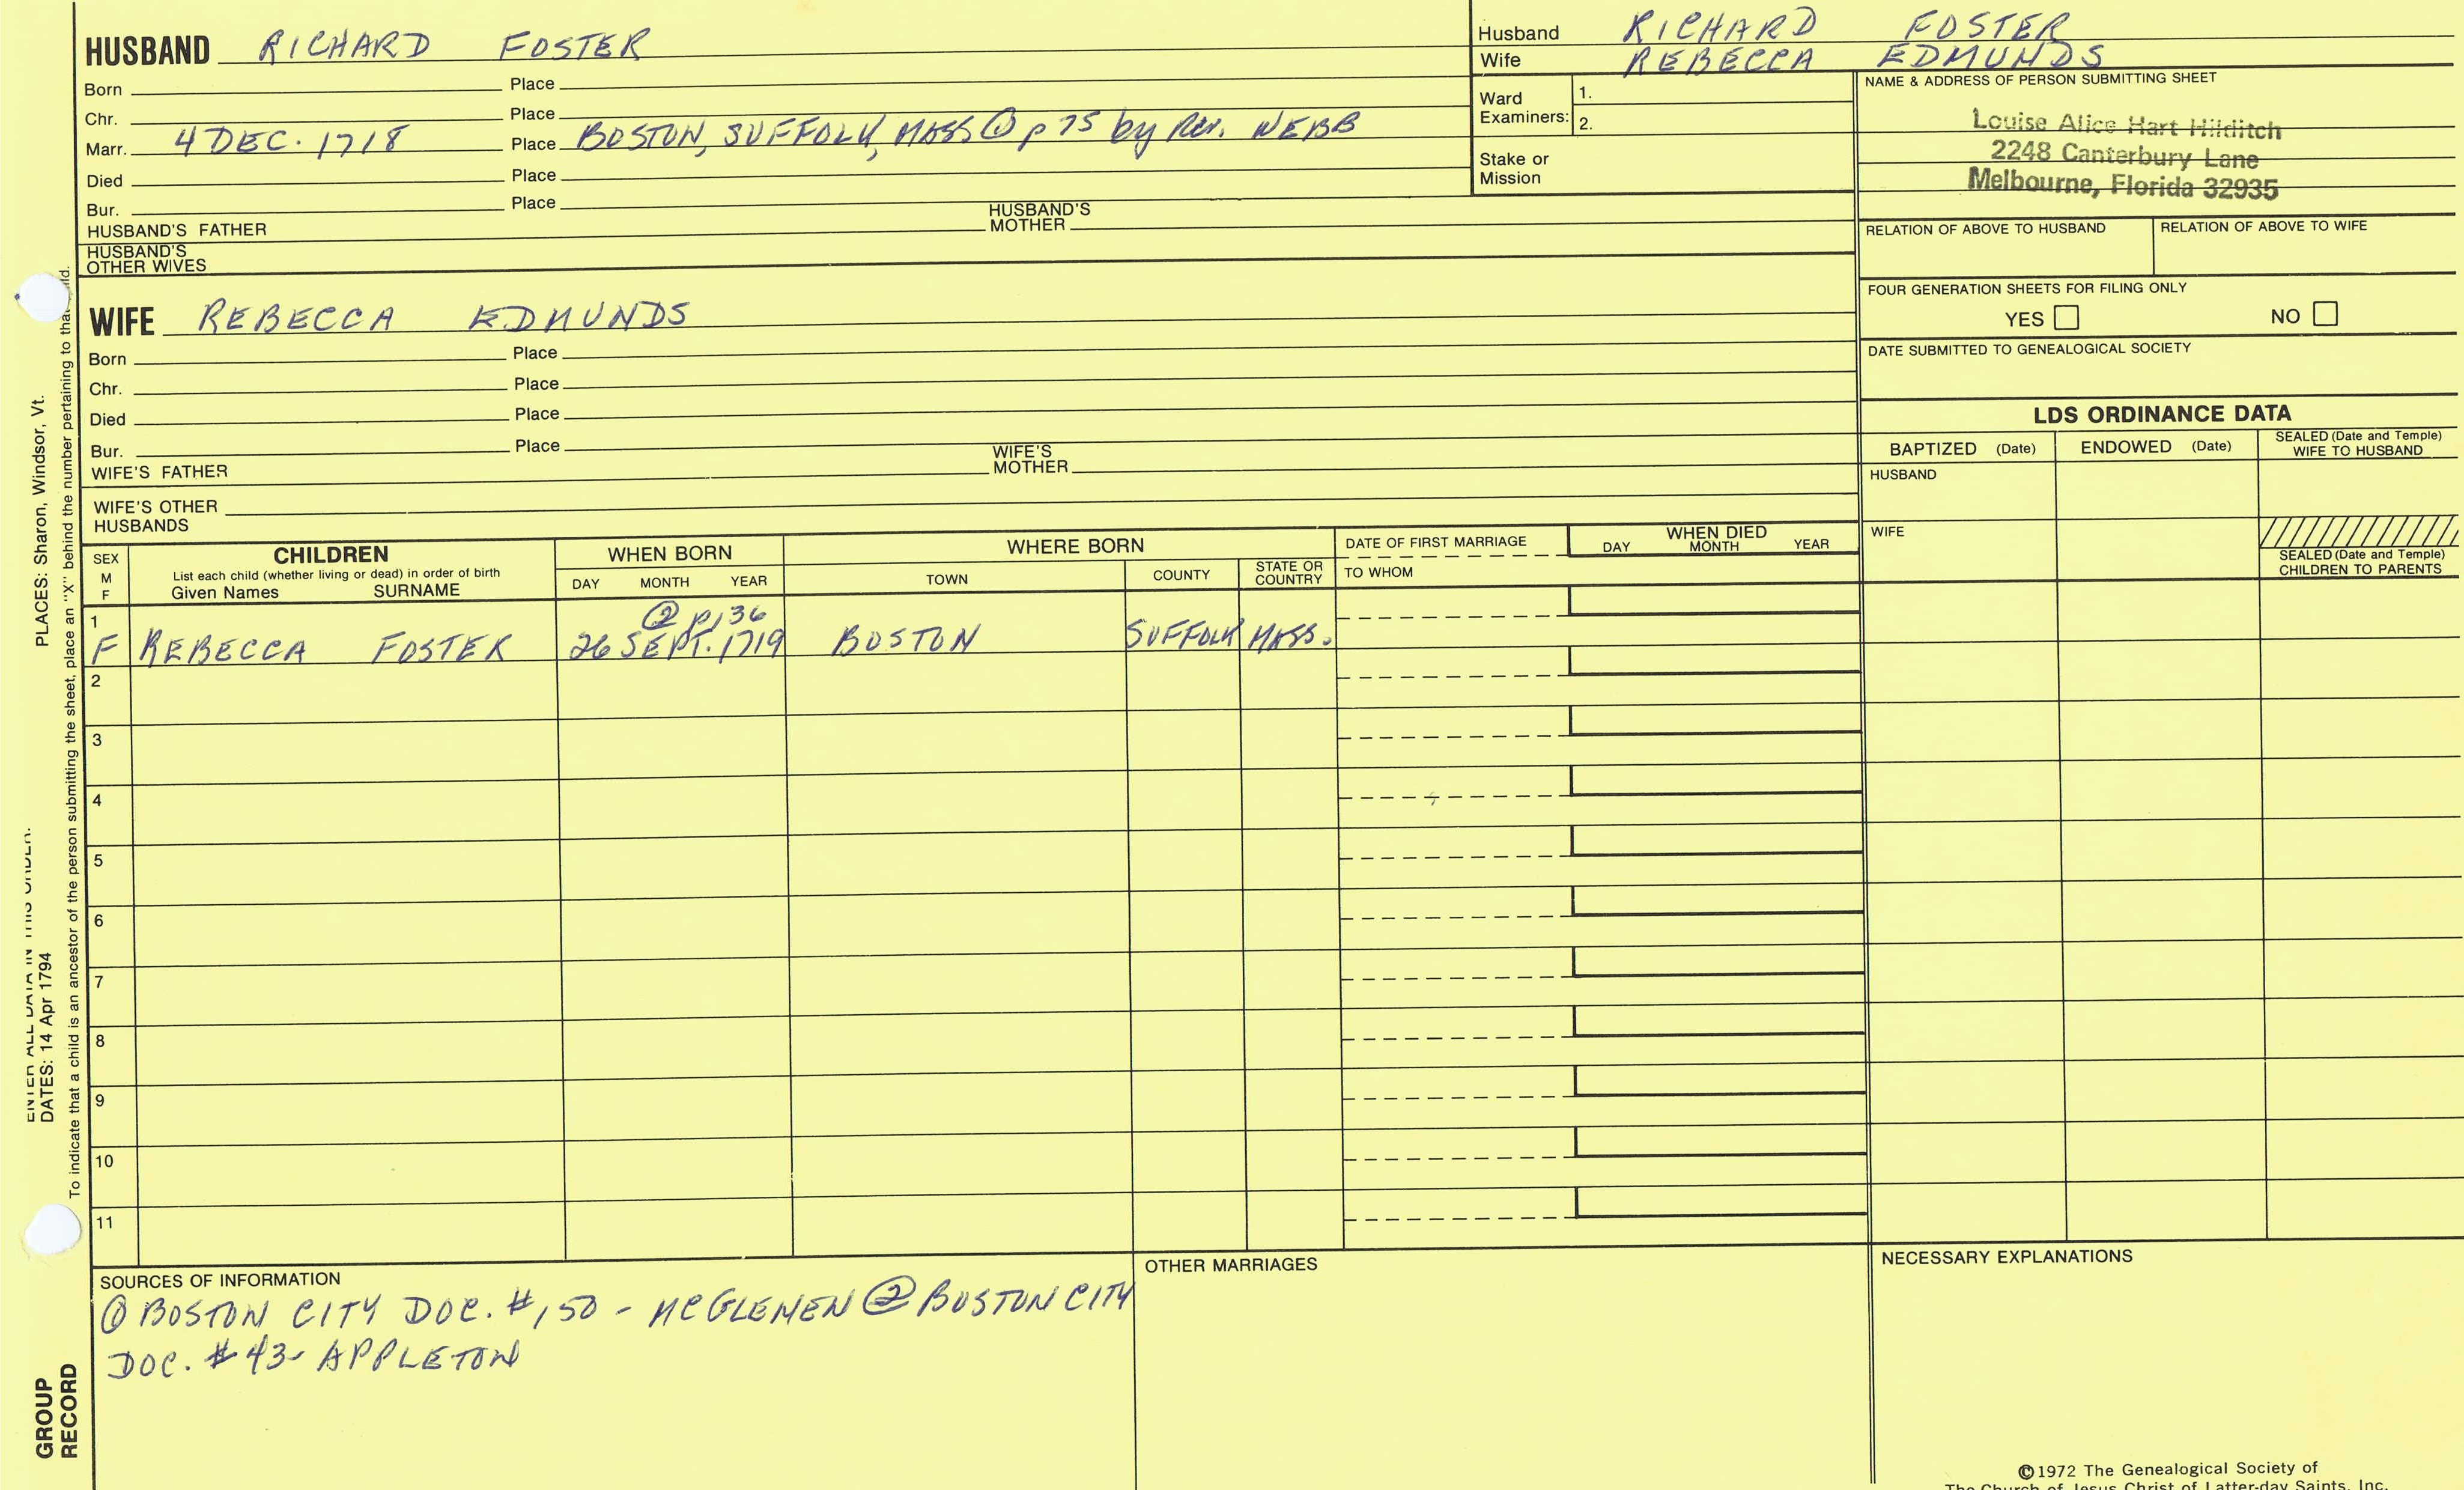 HUSBAND RICHARD FOSTER
Born Place
Chr. Place
Marr. 4 DEC. 1718 Place BOSTON, SUFFOLK, MASS ① p 75 by Rev. WEBB
Died Place
Bur. Place
HUSBAND'S FATHER HUSBAND'S MOTHER
HUSBAND'S OTHER WIVES
Husband RICHARD FOSTER
Wife REBECCA EDMUNDS
Ward Examiners: 1.
2.
Stake or Mission
NAME & ADDRESS OF PERSON SUBMITTING SHEET
Louise Alice Hart Hilditch
2248 Canterbury Lane
Melbourne, Florida 32935
RELATION OF ABOVE TO HUSBAND RELATION OF ABOVE TO WIFE
FOUR GENERATION SHEETS FOR FILING ONLY
YES NO
DATE SUBMITTED TO GENEALOGICAL SOCIETY
WIFE REBECCA EDMUNDS
Born Place
Chr. Place
Died Place
Bur. Place
WIFE'S FATHER WIFE'S MOTHER
WIFE'S OTHER HUSBANDS
LDS ORDINANCE DATA
BAPTIZED (Date) ENDOWED (Date) SEALED (Date and Temple) WIFE TO HUSBAND
HUSBAND
WIFE
SEALED (Date and Temple) CHILDREN TO PARENTS
SEX M F
CHILDREN
List each child (whether living or dead) in order of birth
Given Names SURNAME
WHEN BORN
DAY MONTH YEAR
WHERE BORN
TOWN COUNTY STATE OR COUNTRY
DATE OF FIRST MARRIAGE
TO WHOM
WHEN DIED
DAY MONTH YEAR
1 ② p, 36
F REBECCA FOSTER 26 SEPT. 1719 BOSTON SUFFOLK MASS.
2
3
4
5
6
7
8
9
10
11
SOURCES OF INFORMATION
① BOSTON CITY DOC. #150 - MCGLENEN ② BOSTON CITY
DOC. #43- APPLETON
OTHER MARRIAGES
NECESSARY EXPLANATIONS
©1972 The Genealogical Society of
The Church of Jesus Christ of Latter-day Saints, Inc.
ENTER ALL DATA IN THIS ORDER:
DATES: 14 Apr 1794 PLACES: Sharon, Windsor, Vt.
To indicate that a child is an ancestor of the person submitting the sheet, place an "X" behind the number pertaining to that child.
GROUP
RECORD